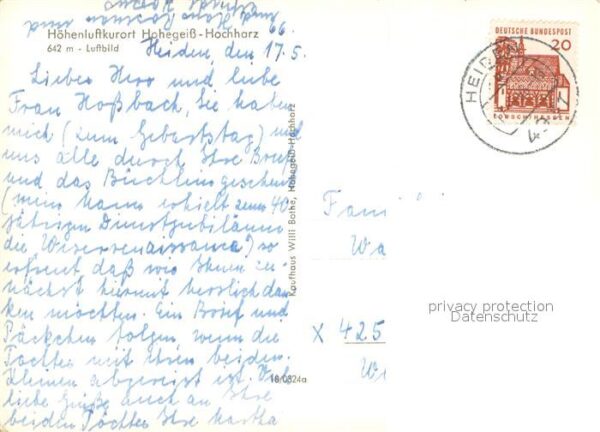 Höhenluftkurort Hohegeiß-Hochharz
642 m - Luftbild
Heiden, den 17.5.66.
Lieber Herr und liebe
Frau Hoßbach, Sie haben
mich (zum Geburtstag) und
uns alle durch Ihre
und das Büchleingeschenk
(mein Mann erhielt zum 40
jährigen Dienstjubiläum
die Weserrenaissance) so
erfreut daß wir Ihnen zu
nächst hiermit herzlich dan
ken möchten. Ein Brief und
Päckchen folgen, wenn die
Tochter mit ihren beiden
Kleinen abgereist ist. Viele
liebe Grüße auch an Ihre
beiden Töchter Ihre Martha
und
Kaufhaus Willi Bothe, Hohegeiß-Hochharz
18/0824a
DEUTSCHE BUNDESPOST
20
LORSCH/HESSEN
HEIDEN
Fami
Wa
x 425
W
privacy protection
Datenschutz